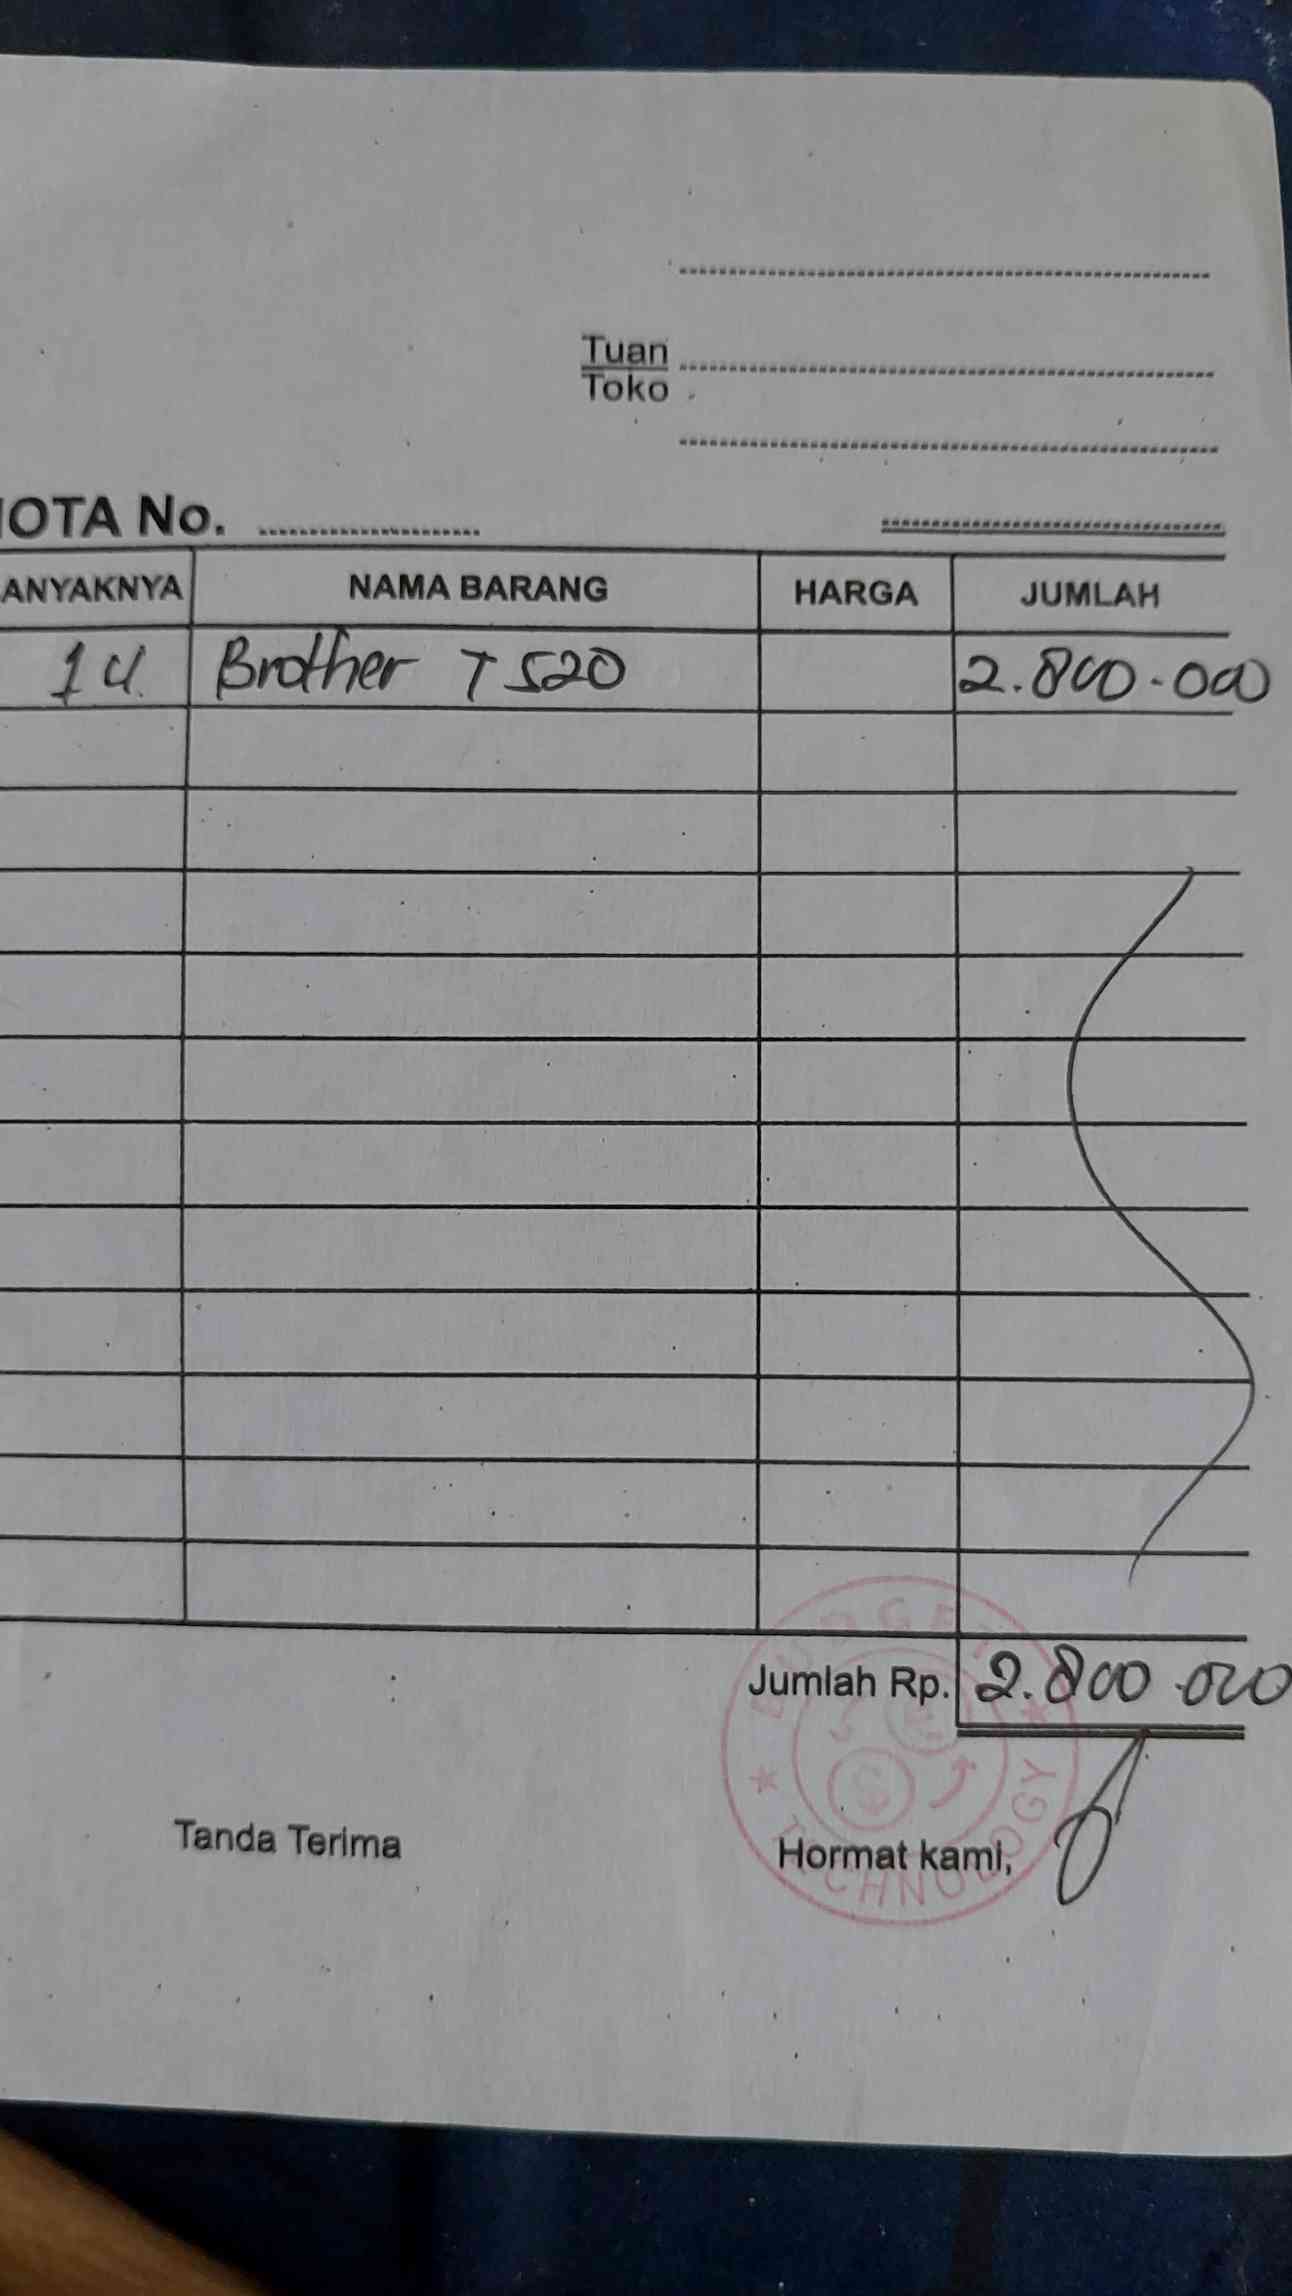 Tuan
Toko
IOTA No.
ANYAKNYA NAMA BARANG HARGA JUMLAH
1 U. Brother T 520 2.800.000
Jumlah Rp. 2.800.000
BUDGET
TECHNOLOGY
Tanda Terima Hormat kami,